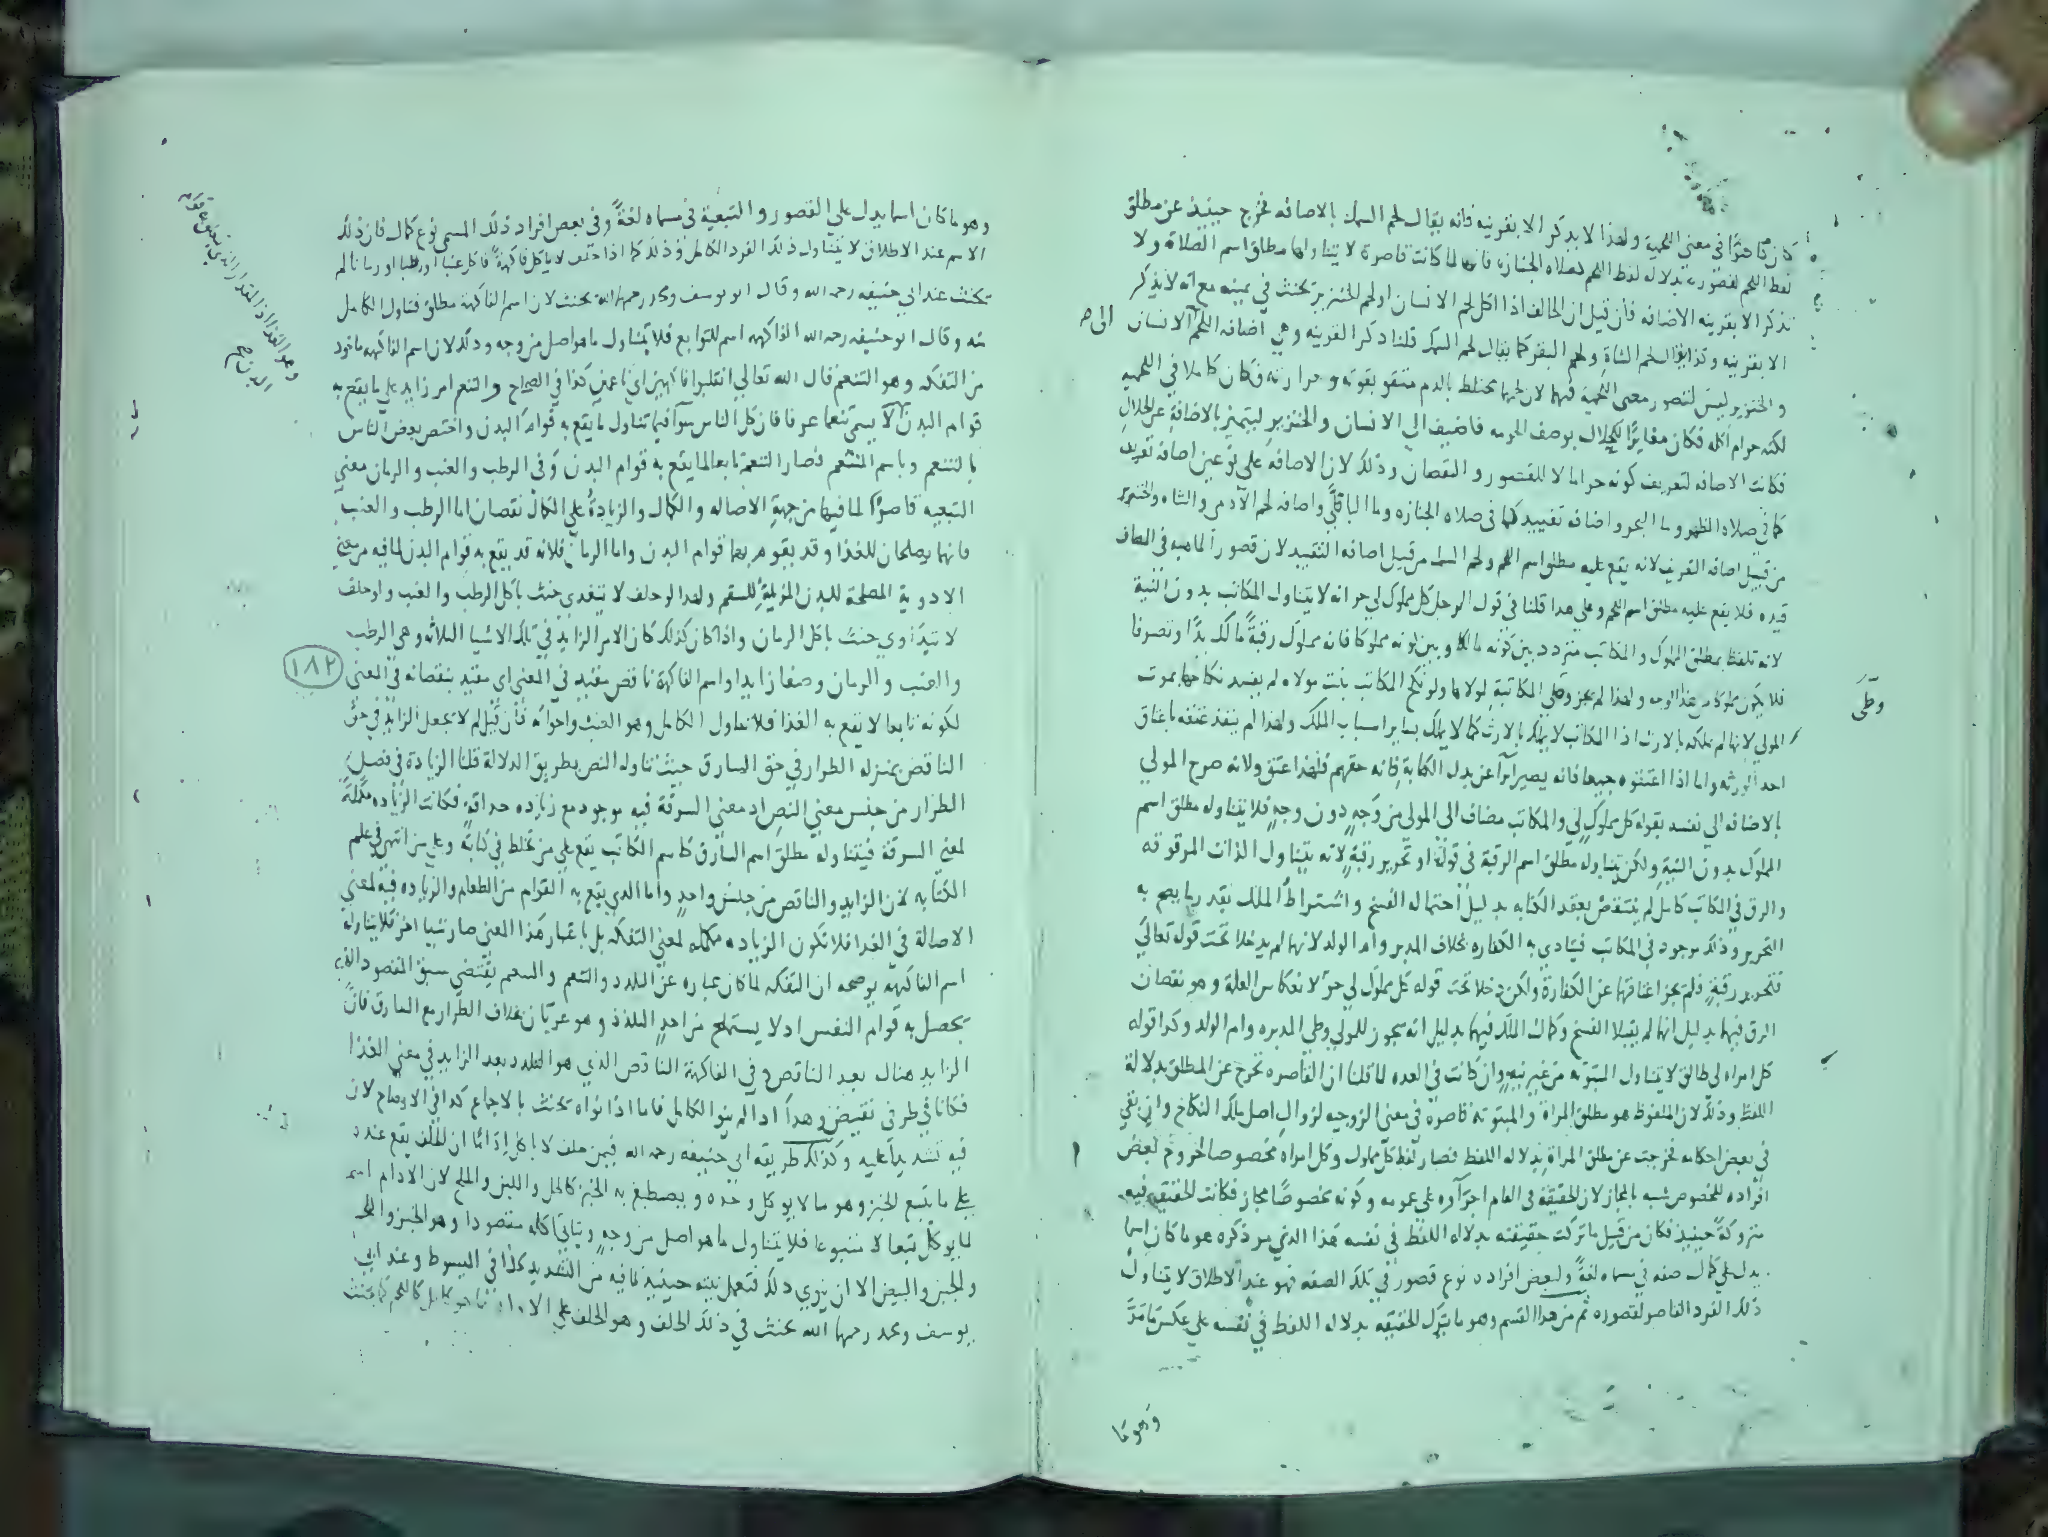 كان قاصرًا في معنى اللحمية ولهذا لا يذكر الا بقرينه فانه يقال لحم السمك بالاضافه فخرج حينيذ عن مطلق
لفظ اللحم لقصوره بدلاله لفظ اللحم كصلاه الجنازه فانها لما كانت قاصرة لا يتناولها مطلق اسم الصلاة ولا
تذكر الا بقرينه الاضافه فان قيل ان الحالف اذا اكل لحم الانسان او لحم الخنزير يحنث في يمينه مع انه لا يذكر
الا بقرينه وكذا يقال لحم الشاة ولحم البقر كما يقال لحم السمك قلنا ذكر القرينه وهي اضافه اللحم الى الانسان
والخنزير ليس لقصور معنى اللحمية فيهما لان لحمهما مختلط بالدم متقو بقوته وحرارته فكان كاملا في اللحميه
لكنه حرام اكله فكان مغايرًا للحلال بوصف الحرمه فاضيف الي الانسان والخنزير ليتميز بالاضافة عن الحلال
فكانت الاضافه لتعريف كونه حراما لا للقصور والنقصان وذلك لان الاضافه على نوعين اضافه تعريف
كما في صلاه الظهر وما البحر واضافه تقييد كما في صلاه الجنازه وما الباقلي واضافه لحم الآدمي والشاه والخنزير
من قبيل اضافه التعريف لانه يقع عليه مطلق اسم اللحم ولحم السمك من قبيل اضافه التقييد لان قصور الماهيه في المضاف
قيده فلا يقع عليه مطلق اسم اللحم وعلي هذا قلنا في قول الرجل كل مملوك لي حر انه لا يتناول المكاتب بدون النية
لانه تلفظ بمطلق المملوك والمكاتب متردد بين كونه مالكا وبين كونه مملوكا فانه مملوك رقبةً مالك يدًا وتصرفا
فلا يكون مملوكا من هذا الوجه ولهذا لم يجز وطي المكاتبة لمولاها ولو نكح المكاتب بنت مولاه لم يفسد نكاحها بموت
المولي لانها لم تملكه بالارث اذ المكاتب لا يملك بالارث كما لا يملك بساير اسباب الملك ولهذا لم ينفذ عتقه باعتاق
احد الورثه واما اذا اعتقوه جميعا فانه يصير ابرآ عن بدل الكتابة فانه حقهم فلهذا عتق ولانه صرح المولي
بالاضافه الي نفسه بقوله كل مملوك لي والمكاتب مضاف الى المولى من وجهٍ دون وجهٍ فلا يتناوله مطلق اسم
المملوك بدون النية ولكن يتناوله مطلق اسم الرقبة في قوله او تحرير رقبةٍ لانه يتناول الذات المرقوقه
والرق في المكاتب كامل لم ينتقض بعقد الكتابه بدليل احتماله الفسخ واشتراط الملك بقدر ما يصح به
التحرير وذلك موجود في المكاتب فيتادي به الكفاره بخلاف المدبر وام الولد لانهما لم يدخلا تحت قوله تعالى
فتحرير رقبةٍ فلم يجز اعتاقهما عن الكفارة ولكن دخلا تحت قوله كل مملوك لي حر لانعكاس العلة وهو نقصان
الرق فيهما بدليل انهما لم يقبلا الفسخ وكمال الملك فيهما بدليل انه يجوز للمولي وطي المدبره وام الولد وكذا قوله
كل امراه لي طالق لا يتناول المبتوته من غير نيةٍ وان كانت في العده لما قلنا ان القاصره تخرج عن المطلق بدلالة
اللفظ وذلك لان الملفوظ هو مطلق المراة والمبتوتة قاصرة في معنى الزوجيه لزوال اصل ملك النكاح وان بقي
في بعض احكامه فخرجت عن مطلق المراة بدلاله اللفظ فصار لفظ كل مملوك وكل امراه مخصوصا لخروج بعض
افراده للخصوص شبه بالمجاز لان الحقيقة في العام اجرآوه على عمومه وكونه مخصوصًا مجاز فكانت الحقيقه فيه
متروكةً حينيذ فكان من قبيل ما تركت حقيقته بدلاله اللفظ في نفسه هذا الذي مر ذكره هو ما كان اسما
يدل علي كمال صفه في مسماه لغةً ولبعض افراده نوع قصور في تلك الصفه فهو عند الاطلاق لا يتناول
ذلك الفرد القاصر لقصوره ثم من هذا القسم وهو ما تترك الحقيقه بدلاله اللفظ في نفسه على عكس ما مر
الى صح
وطى
وهو ما
وهو ما كان اسما يدل على القصور والتبعية في مسماه لغةً وفي بعض افراد ذلك المسمى نوع كمال فان ذلك
الاسم عند الاطلاق لا يتناول ذلك الفرد الكامل وذلك كما اذا حلف لا ياكل فاكهةً فاكل عنبا او رطبا او رمانا لم
يحنث عند ابي حنيفه رحمه الله وقال ابو يوسف ومحمد رحمهما الله يحنث لان اسم الفاكهة مطلق فتناول الكامل
منه وقال ابو حنيفه رحمه الله الفاكهه اسم للتوابع فلا يتناول ما هو اصل من وجه وذلك لان اسم الفاكهه ماخوذ
من التفكه وهو التنعم قال الله تعالي انقلبوا فاكهين اي ناعمين كذا في الصحاح والتنعم امر زايد علي ما يقع به
قوام البدن لا يسمى تنعما عرفا فان كل الناس سوآ في تناول ما يقع به قوام البدن واختص بعض الناس
بالتنعم وباسم المتنعم فصار التنعم تابعا لما يقع به قوام البدن وفي الرطب والعنب والرمان معني
التبعيه قاصرًا لما فيها من جهة الاصاله والكمال والزيادة على الكمال نقصان اما الرطب والعنب
فانهما يصلحان للغذا وقد يقع بهما قوام البدن واما الرمان فلانه قد يقع به قوام البدن لما فيه من معني
الادوية المصلحة للبدن المزيلة للسقم ولهذا لو حلف لا يتغدى حنث باكل الرطب والعنب ولو حلف
لا يتداوي حنث باكل الرمان واذا كان كذلك كان الامر الزايد في تلك الاشيا الثلاثه وهي الرطب
والعنب والرمان وصفا زايدا واسم الفاكهة ناقص مقيد في المعني اي مقيد بنقصانه في المعنى
لكونه تابعا لا يقع به الغذا فلا يتناول الكامل وهو العنب واخواته فان قيل لم لا يجعل الزايد في حق
الناقص بمنزله الطرار في حق السارق حيث تناوله النص بطريق الدلالة قلنا الزيادة في فصل
الطرار من جنس معني النص اذ معني السرقة فيه موجود مع زياده حذاقةٍ فكانت الزياده مكملةً
لمعني السرقة فيتناوله مطلق اسم السارق كاسم الكاتب يقع علي من يخلط في كتابةٍ وعلي من انتهى في علم
الكتابه لان الزايد والناقص من جنس واحدٍ واما الذي يقع به القوام من الطعام والزياده فيه لمعني
الاصالة في الغذا فلا تكون الزياده مكمله لمعني التفكه بل باعتبار هذا المعنى صار شيا اخر فلا يتناوله
اسم الفاكهه يوضحه ان التفكه لما كان عباره عن التلذذ والتنعم والتنعم يقتضي سبق المقصود الذي
يحصل به قوام النفس اذ لا يستملح من احدٍ التلذذ وهو عريان بخلاف الطرار مع السارق فان
الزايد هناك بعد الناقص وفي الفاكهة الناقص الذي هو التلذذ بعد الزايد في معني الغذا
فكانا في طرفي نقيض وهذا اذا لم ينو الكامل فاما اذا نواه يحنث بالاجماع كذا في الايضاح لان
فيه تشديدا عليه وكذلك طريقه ابي حنيفه رحمه الله فيمن حلف لا ياكل ادامًا ان الحلف يقع عنده
علي ما يتبع الخبز وهو ما لا يوكل وحده ويصطبغ به الخبز كالخل واللبن والملح لان الادام اسم
لما يوكل تبعا لا متبوعا فلا يتناول ما هو اصل من وجهٍ ويتاتي اكله مقصودا وهو الجبن واللحم
والجبن والبيض الا ان ينوي ذلك فتعمل نيته حينيذ لما فيه من التشديد كذا في المبسوط وعند ابي
يوسف ومحمد رحمهما الله يحنث في ذلك الحلف وهو الحلف علي الادام بما هو كامل كاللحم كما يحنث
وهو الغذا اذ الغذا الذي يقع به قوام
البدن صح
١٨٢